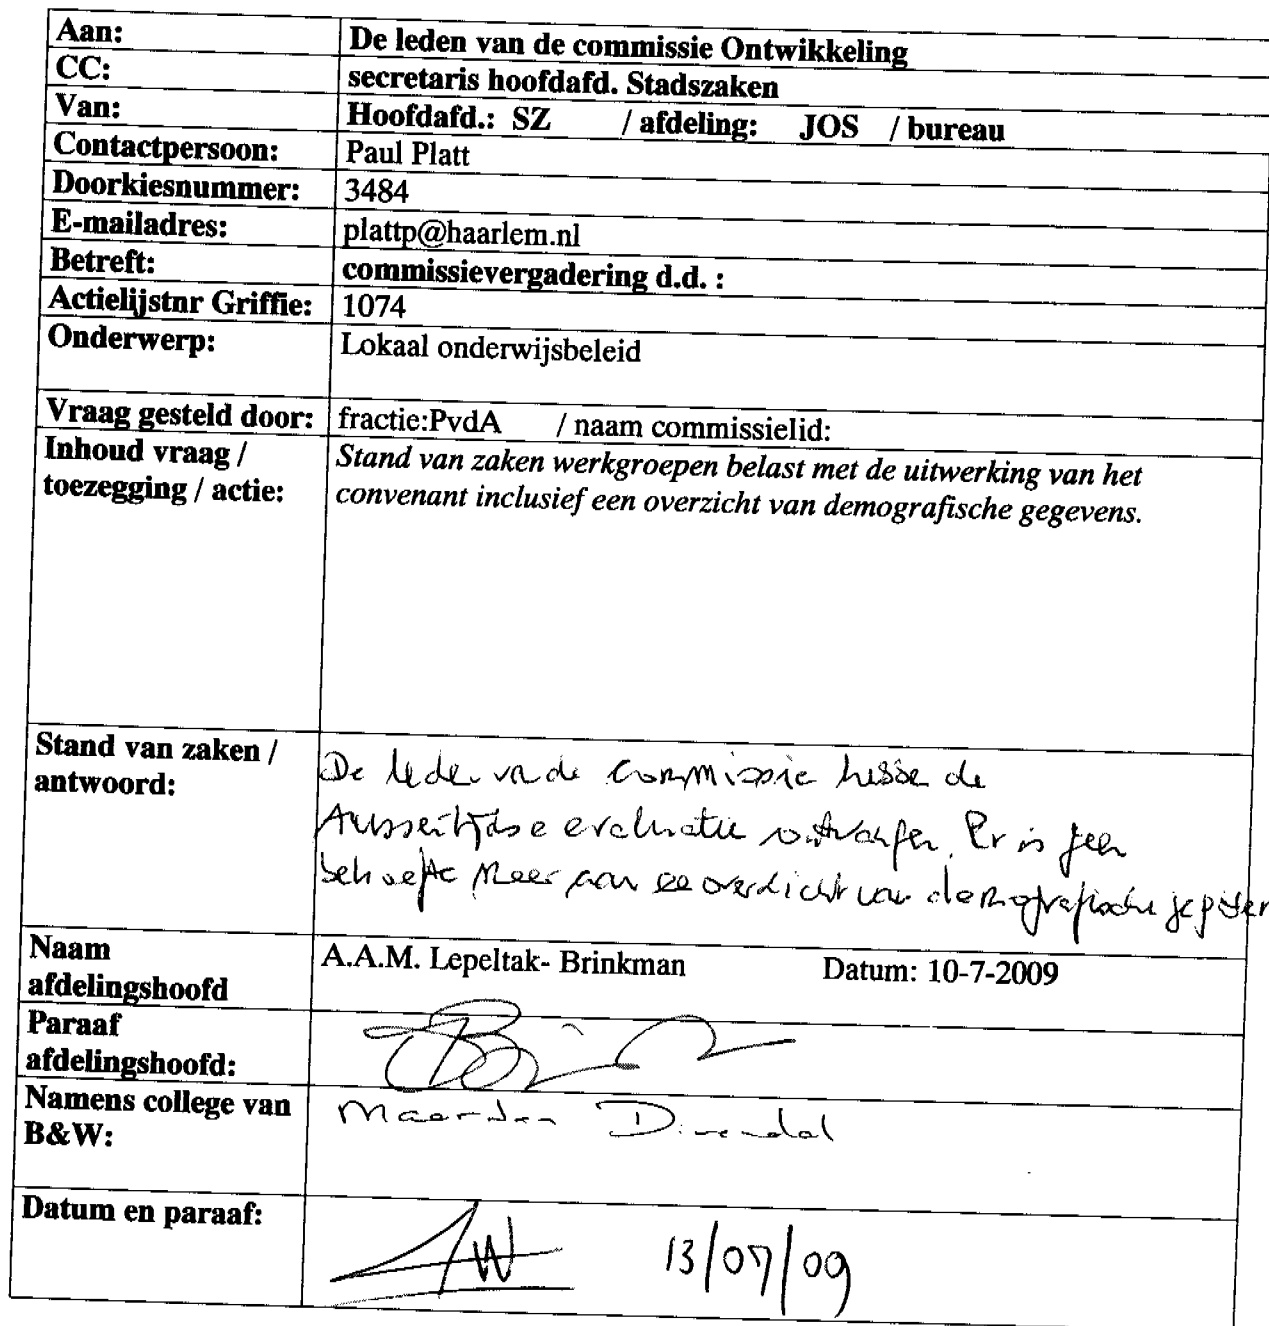 Aan: De leden van de commissie Ontwikkeling
CC: secretaris hoofdafd. Stadszaken
Van: Hoofdafd.: SZ / afdeling: JOS / bureau
Contactpersoon: Paul Platt
Doorkiesnummer: 3484
E-mailadres: plattp@haarlem.nl
Betreft: commissievergadering d.d. :
Actielijstnr Griffie: 1074
Onderwerp: Lokaal onderwijsbeleid
Vraag gesteld door: fractie:PvdA / naam commissielid:
Inhoud vraag / Stand van zaken werkgroepen belast met de uitwerking van het
toezegging / actie: convenant inclusief een overzicht van demografische gegevens.
Stand van zaken / De leden van de commissie hebben de
antwoord: evaluatie ontvangen. Er is geen
behoefte meer aan een overzicht van demografische
Naam A.A.M. Lepeltak- Brinkman Datum: 10-7-2009
afdelingshoofd
Paraaf
afdelingshoofd:
Namens college van Maarten Divendal
B&W:
Datum en paraaf: 13/07/09